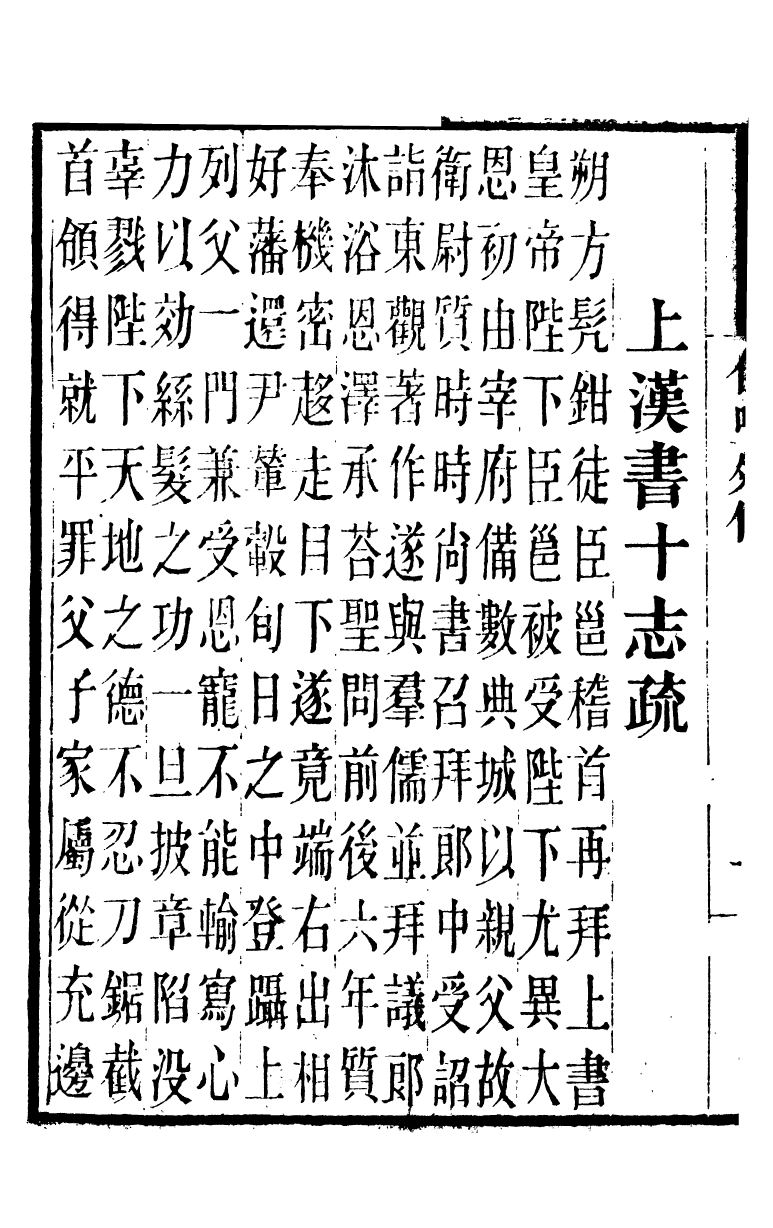 上漢書十志疏
朔方髠鉗徒臣邕稽首再拜上書
皇帝陛下臣邕被受陛下尤異大
恩初由宰府備數典城以親父故
衛尉質時時尚書召拜郎中受詔
詣東觀著作遂與羣儒並拜議郎
沐浴恩澤承荅聖問前後六年質
奉機密趍走目下遂竟端右出相
好藩還尹輦轂旬日之中登躡上
列父一門兼受恩寵不能輸寫心
力以効絲髮之功一旦披章陷没
辜戮陛下天地之德不忍刀鋸截
首領得就平罪父子家屬從充邊